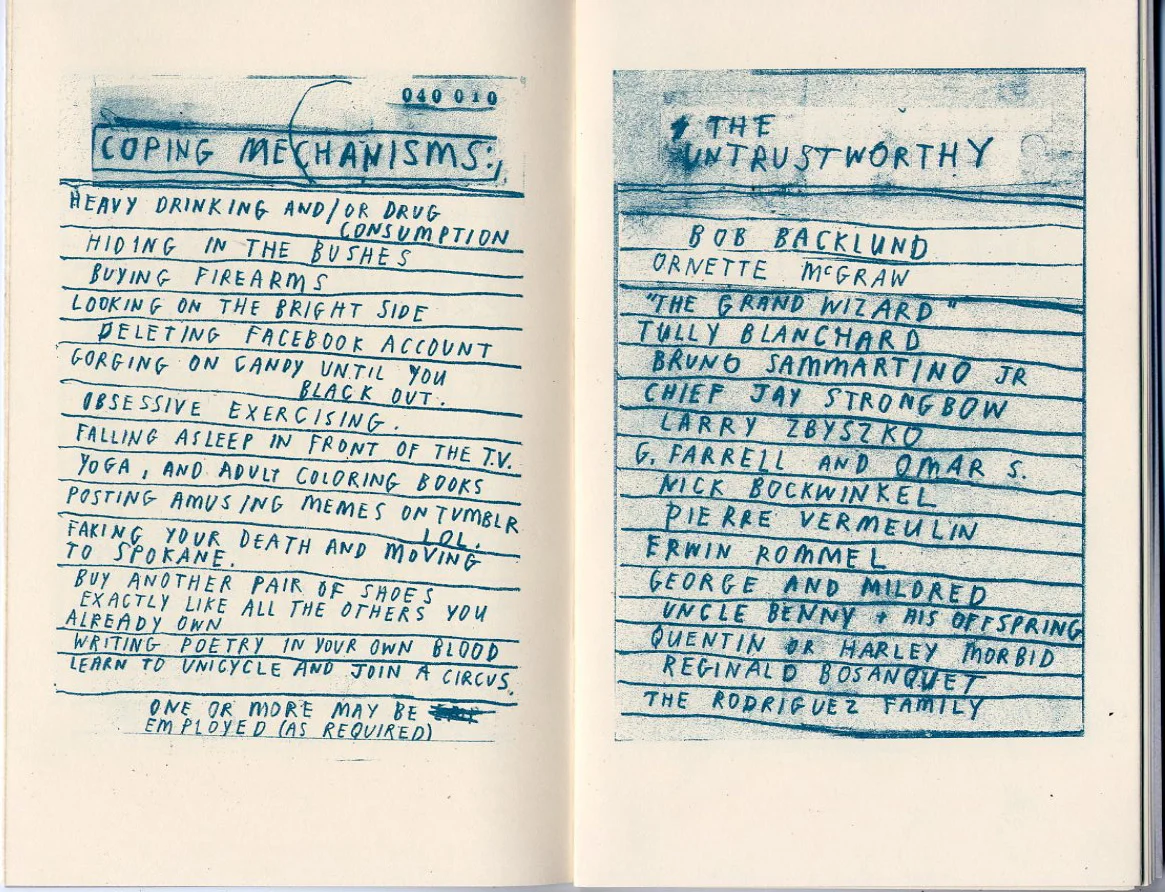 040 010
COPING MECHANISMS:
HEAVY DRINKING AND/OR DRUG
CONSUMPTION
HIDING IN THE BUSHES
BUYING FIREARMS
LOOKING ON THE BRIGHT SIDE
DELETING FACEBOOK ACCOUNT
GORGING ON CANDY UNTIL YOU
BLACK OUT.
OBSESSIVE EXERCISING.
FALLING ASLEEP IN FRONT OF THE T.V.
YOGA, AND ADULT COLORING BOOKS
POSTING AMUSING MEMES ON TUMBLR
LOL.
FAKING YOUR DEATH AND MOVING
TO SPOKANE.
BUY ANOTHER PAIR OF SHOES
EXACTLY LIKE ALL THE OTHERS YOU
ALREADY OWN
WRITING POETRY IN YOUR OWN BLOOD
LEARN TO UNICYCLE AND JOIN A CIRCUS.
ONE OR MORE MAY BE
EMPLOYED (AS REQUIRED)
THE
UNTRUSTWORTHY
BOB BACKLUND
ORNETTE McGRAW
"THE GRAND WIZARD"
TULLY BLANCHARD
BRUNO SAMMARTINO JR
CHIEF JAY STRONGBOW
LARRY ZBYSZKO
G. FARRELL AND OMAR S.
NICK BOCKWINKEL
PIERRE VERMEULIN
ERWIN ROMMEL
GEORGE AND MILDRED
UNCLE BENNY + HIS OFFSPRING
QUENTIN OR HARLEY MORBID
REGINALD BOSANQUET
THE RODRIGUEZ FAMILY